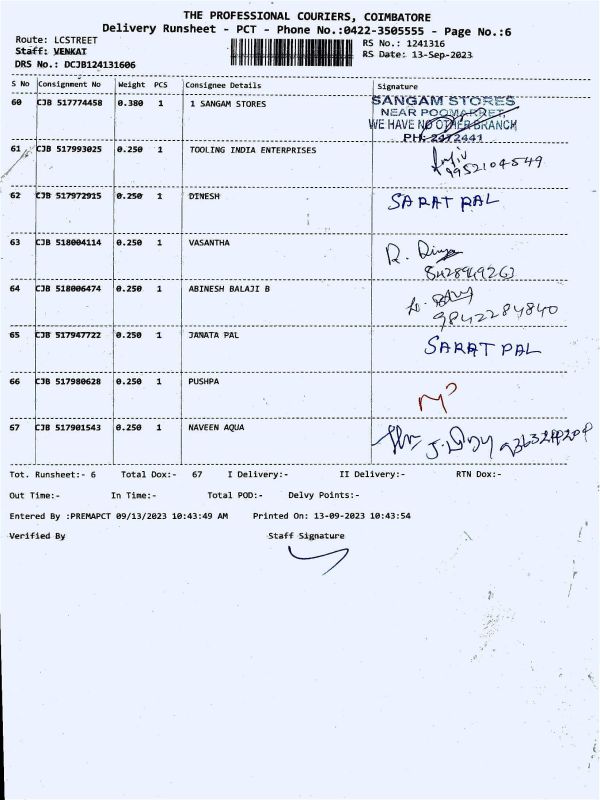 THE PROFESSIONAL COURIERS, COIMBATORE
Delivery Runsheet - PCT - Phone No.:0422-3505555 - Page No.:6
Route: LCSTREET
RS No.: 1241316
Staff: VENKAT
RS Date: 13-Sep-2023
DRS No.: DCJB124131606
S No Consignment No Weight PCS Consignee Details Signature
60 CJB 517774458 0.380 1 1 SANGAM STORES
SANGAM STORES
NEAR POOMARKET,
WE HAVE NO OTHER BRANCH
PH: 2472441
61 CJB 517993025 0.250 1 TOOLING INDIA ENTERPRISES
9952104549
62 CJB 517972915 0.250 1 DINESH SARAT PAL
63 CJB 518004114 0.250 1 VASANTHA R. Divya
8428949263
64 CJB 518006474 0.250 1 ABINESH BALAJI B
9842284840
65 CJB 517947722 0.250 1 JANATA PAL SARAT PAL
66 CJB 517980628 0.250 1 PUSHPA
67 CJB 517901543 0.250 1 NAVEEN AQUA
Tot. Runsheet:- 6 Total Dox:- 67 I Delivery:- II Delivery:- RTN Dox:-
Out Time:- In Time:- Total POD:- Delvy Points:-
Entered By :PREMAPCT 09/13/2023 10:43:49 AM Printed On: 13-09-2023 10:43:54
Verified By Staff Signature